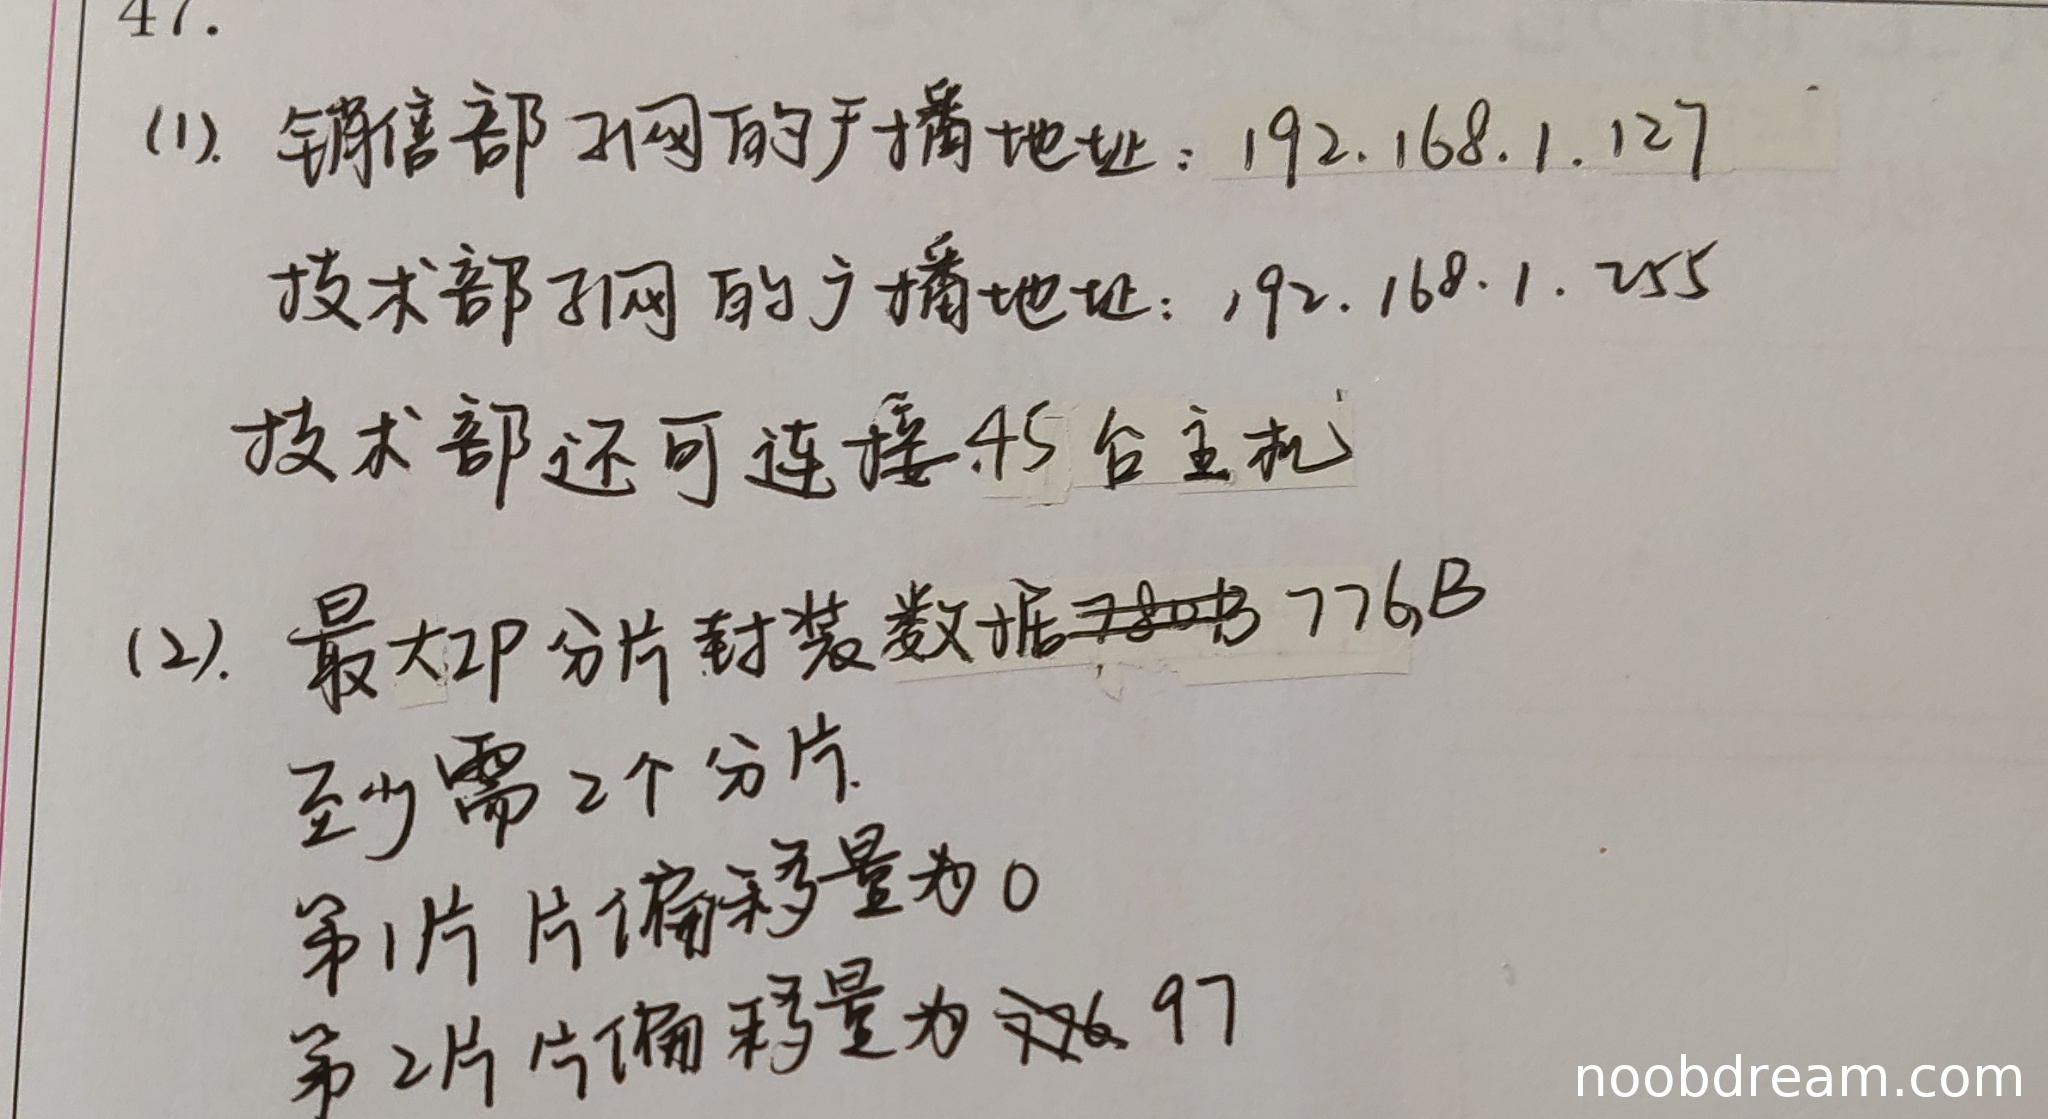 47.
(1). 销售部子网的广播地址: 192.168.1.127
技术部子网的广播地址: 192.168.1.255
技术部还可连接45台主机
(2). 最大IP分片封装数据780B 776B
至少需2个分片.
第1片片偏移量为0
第2片片偏移量为776 97
noobdream.com